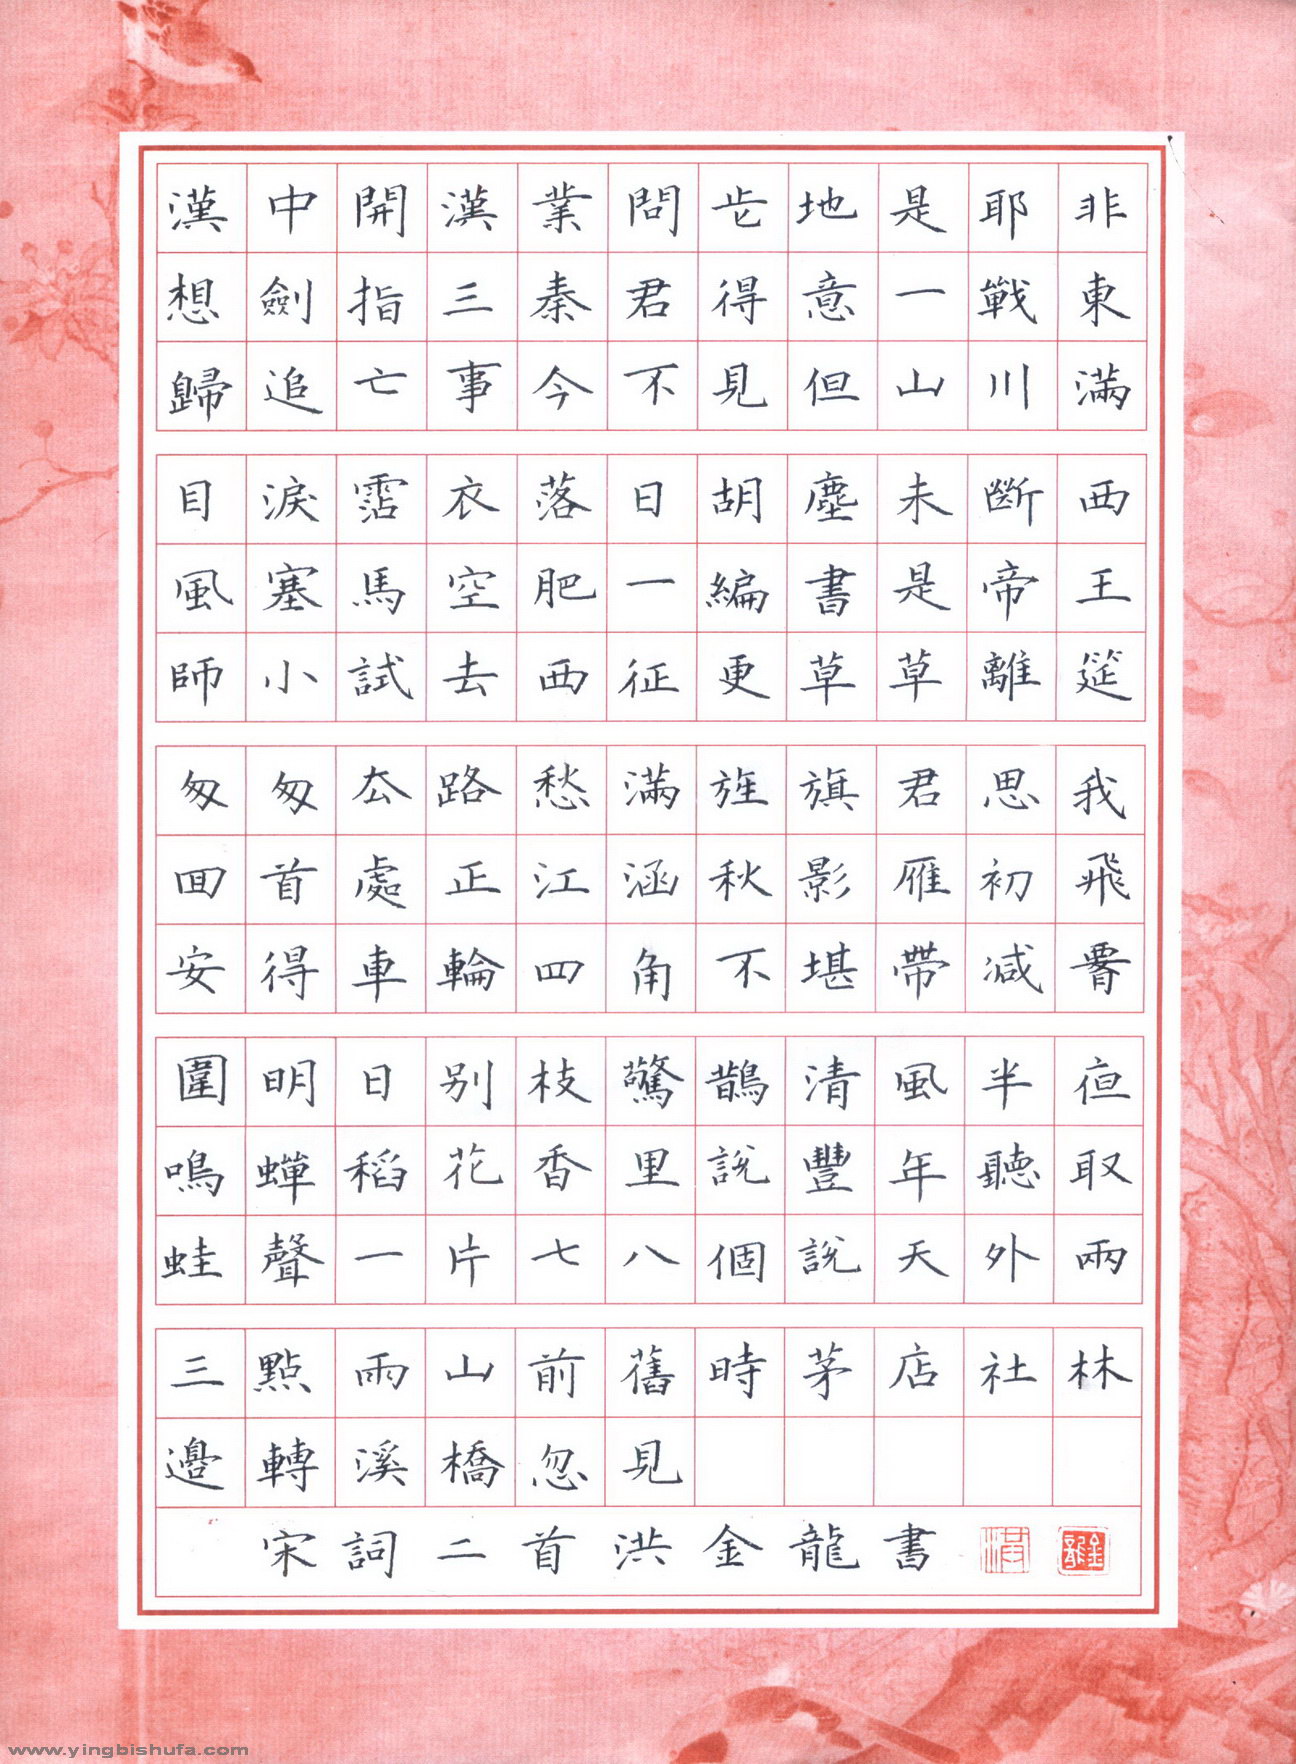 漢中開漢業問此地是耶非
想劍指三秦君得意一戰東
歸追亡事今不見但山川滿
目淚霑衣落日胡塵未斷西
風塞馬空肥一編書是帝王
師小試去西征更草草離筵
匆匆去路愁滿旌旗君思我
回首處正江涵秋影雁初飛
安得車輪四角不堪帶減腰
圍明日别枝驚鵲清風半夜
鳴蟬稻花香里說豐年聽取
蛙聲一片七八個說天外兩
三點雨山前舊時茅店社林
邊轉溪橋忽見
宋詞二首洪金龍書
洪
金龍
www.yingbishufa.com